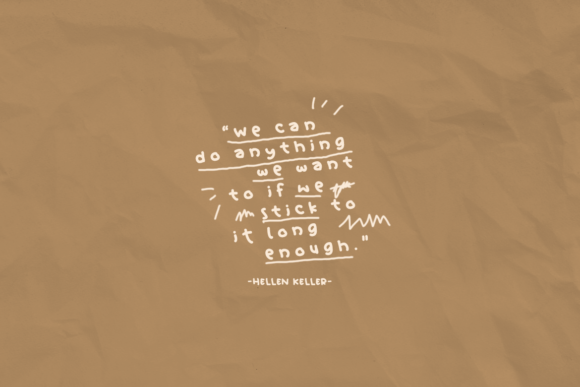 "we can
do anything
we want
to if we
stick to
it long
enough."
-HELLEN KELLER-